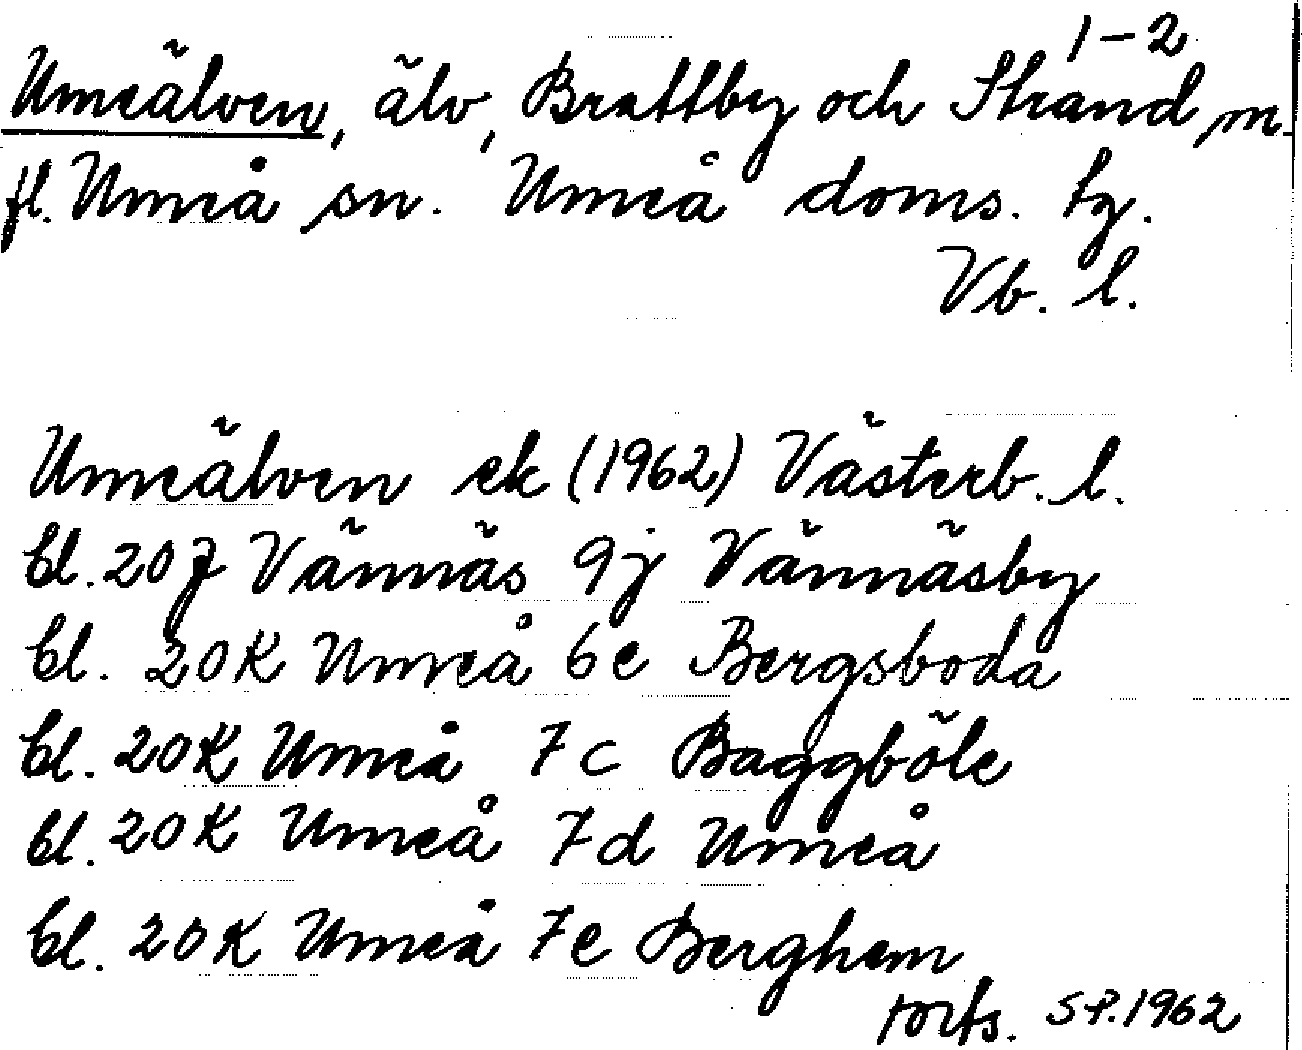 1-2
Umeälven, älv, Brattby och Strand, m.
fl. Umeå sn. Umeå doms. tg.
Vb. l.
Umeälven ek (1962) Västerb. l.
bl. 20J Vännäs 9j Vännäsby
bl. 20K Umeå 6e Bergsboda
bl. 20K Umeå 7c Baggböle
bl. 20K Umeå 7d Umeå
bl. 20K Umeå 7e Berghem
forts. SP. 1962